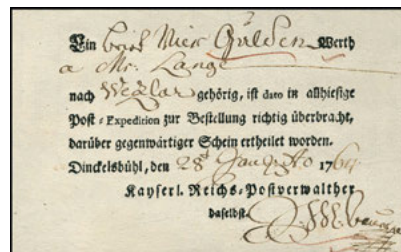 Ein brief Vier Gulden Werth
a Mr. Lange
nach Wezlar gehörig, ist dato in allhiesige
Post-Expedition zur Bestellung richtig überbracht,
darüber gegenwärtiger Schein ertheilet worden.
Dinckelsbühl, den 28 176
Kayserl. Reichs-Postverwalther
daselbst.